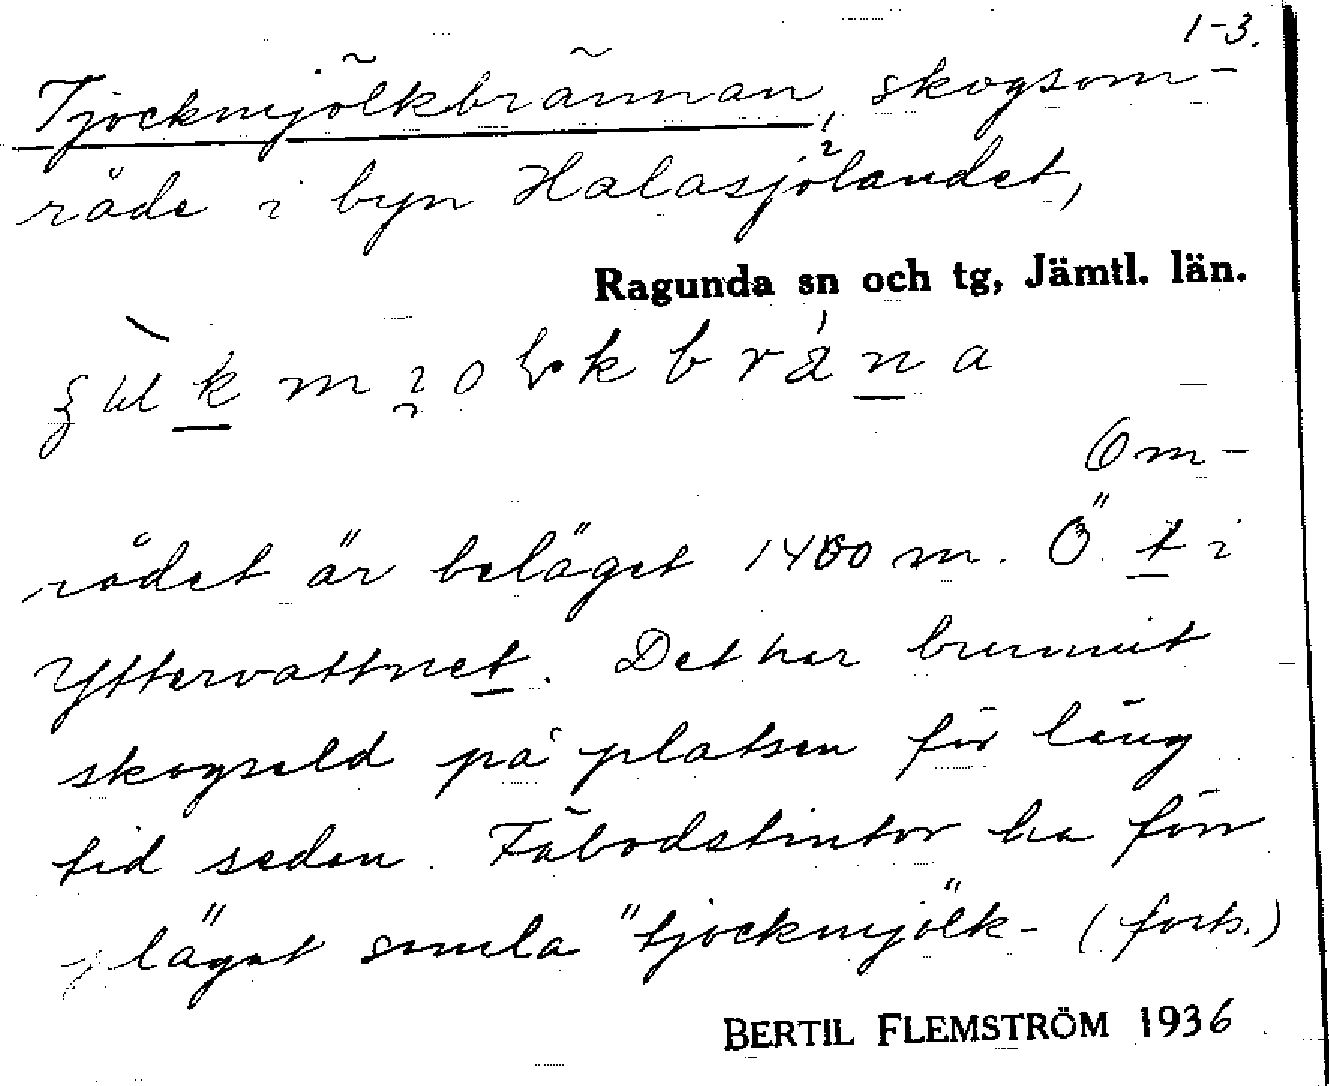 1-3.
Tjockmjölkbrännan, skogsom-
råde i byn Halasjölandet,
Ragunda sn och tg, Jämtl. län.
Om-
rådet är beläget 1400 m. Ö. t i
Yttervattnet. Det har brunnit
skogseld på platsen för läng
tid sedan. Fäbodstintor ha förr
pläget samla "tjockmjölk- (forts.)
BERTIL FLEMSTRÖM 1936